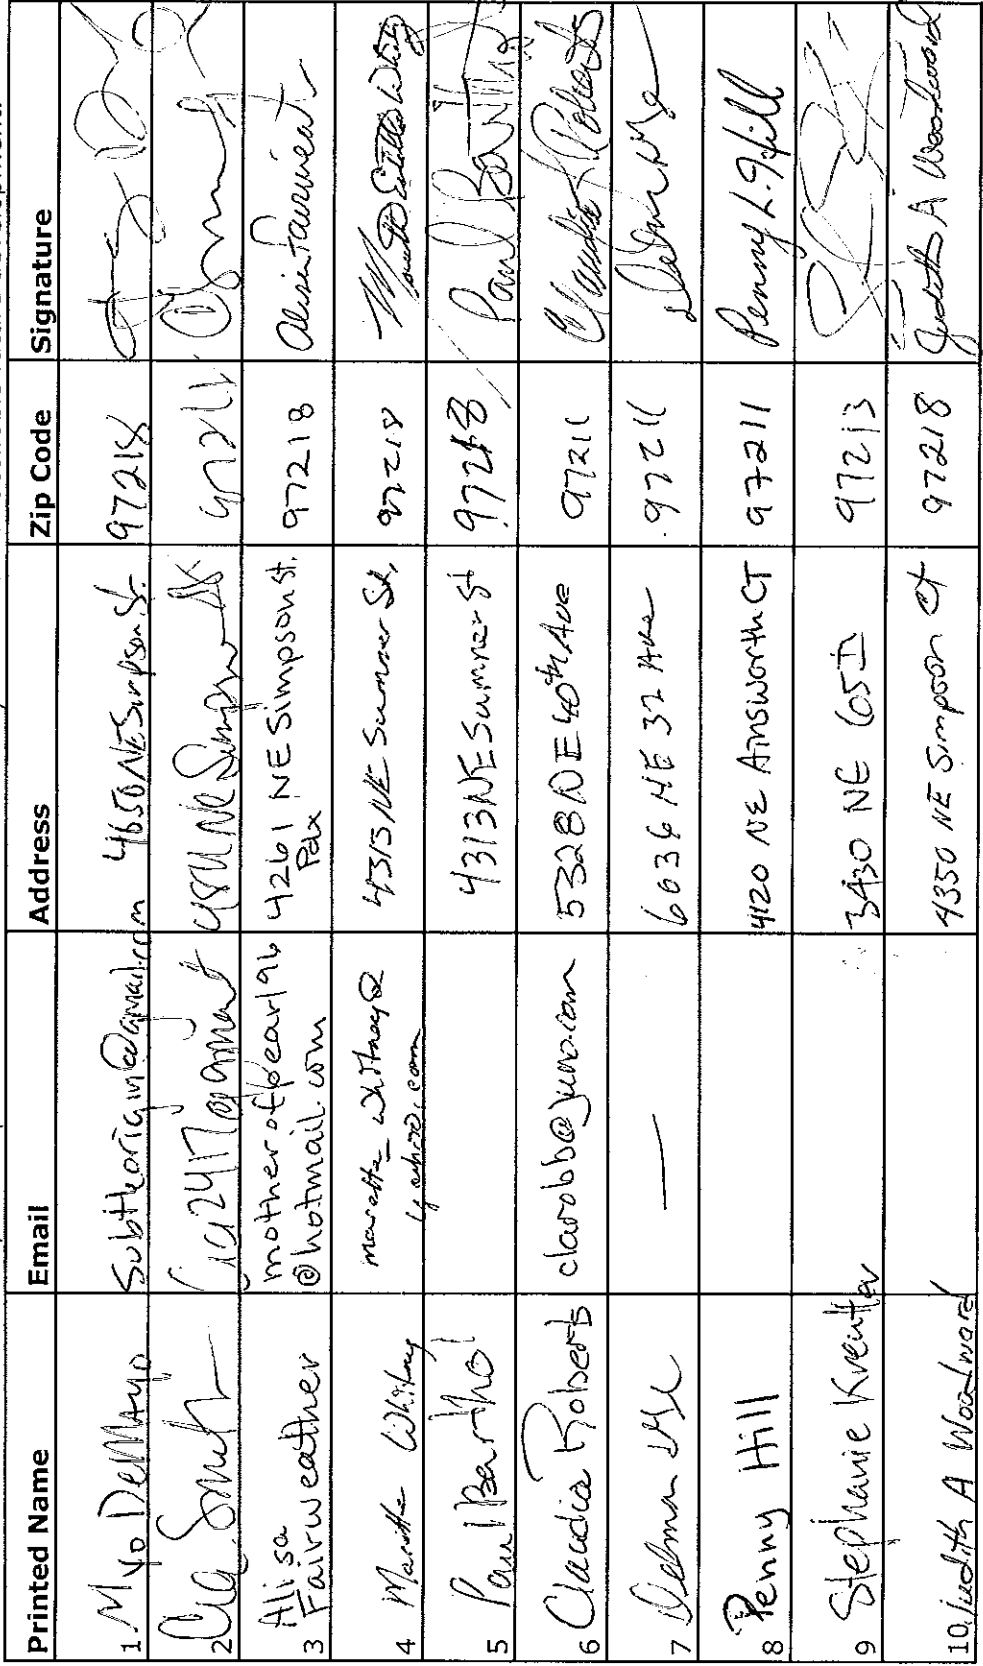 Printed Name Email Address Zip Code Signature
1. Myo DeMayo Subtleorigin@gmail.com 4650 NE Simpson St. 97218
2 Smith NE Simpson 97211
3 Alisa Fairweather motherofpearl96 @hotmail.com 4261 NE Simpson St. Pdx 97218 Alisa Fairweather
4 Marette Whitney marette_whitney@ yahoo.com 4313 NE Sumner St. 97218
5 Paul Barthol 4313 NE Sumner St 97218 Paul Barthol
6 Claudia Roberts clarobb@juno.com 5328 NE 40th Ave 97211 Claudia Roberts
7 Delman — 6036 NE 32 Ave 97211
8 Penny Hill 4120 NE Ainsworth CT 97211 Penny L. Hill
9 Stephanie 3430 NE 65th 97213
10. Judith A Woodward 4350 NE Simpson Ct 97218 Judith A Woodward